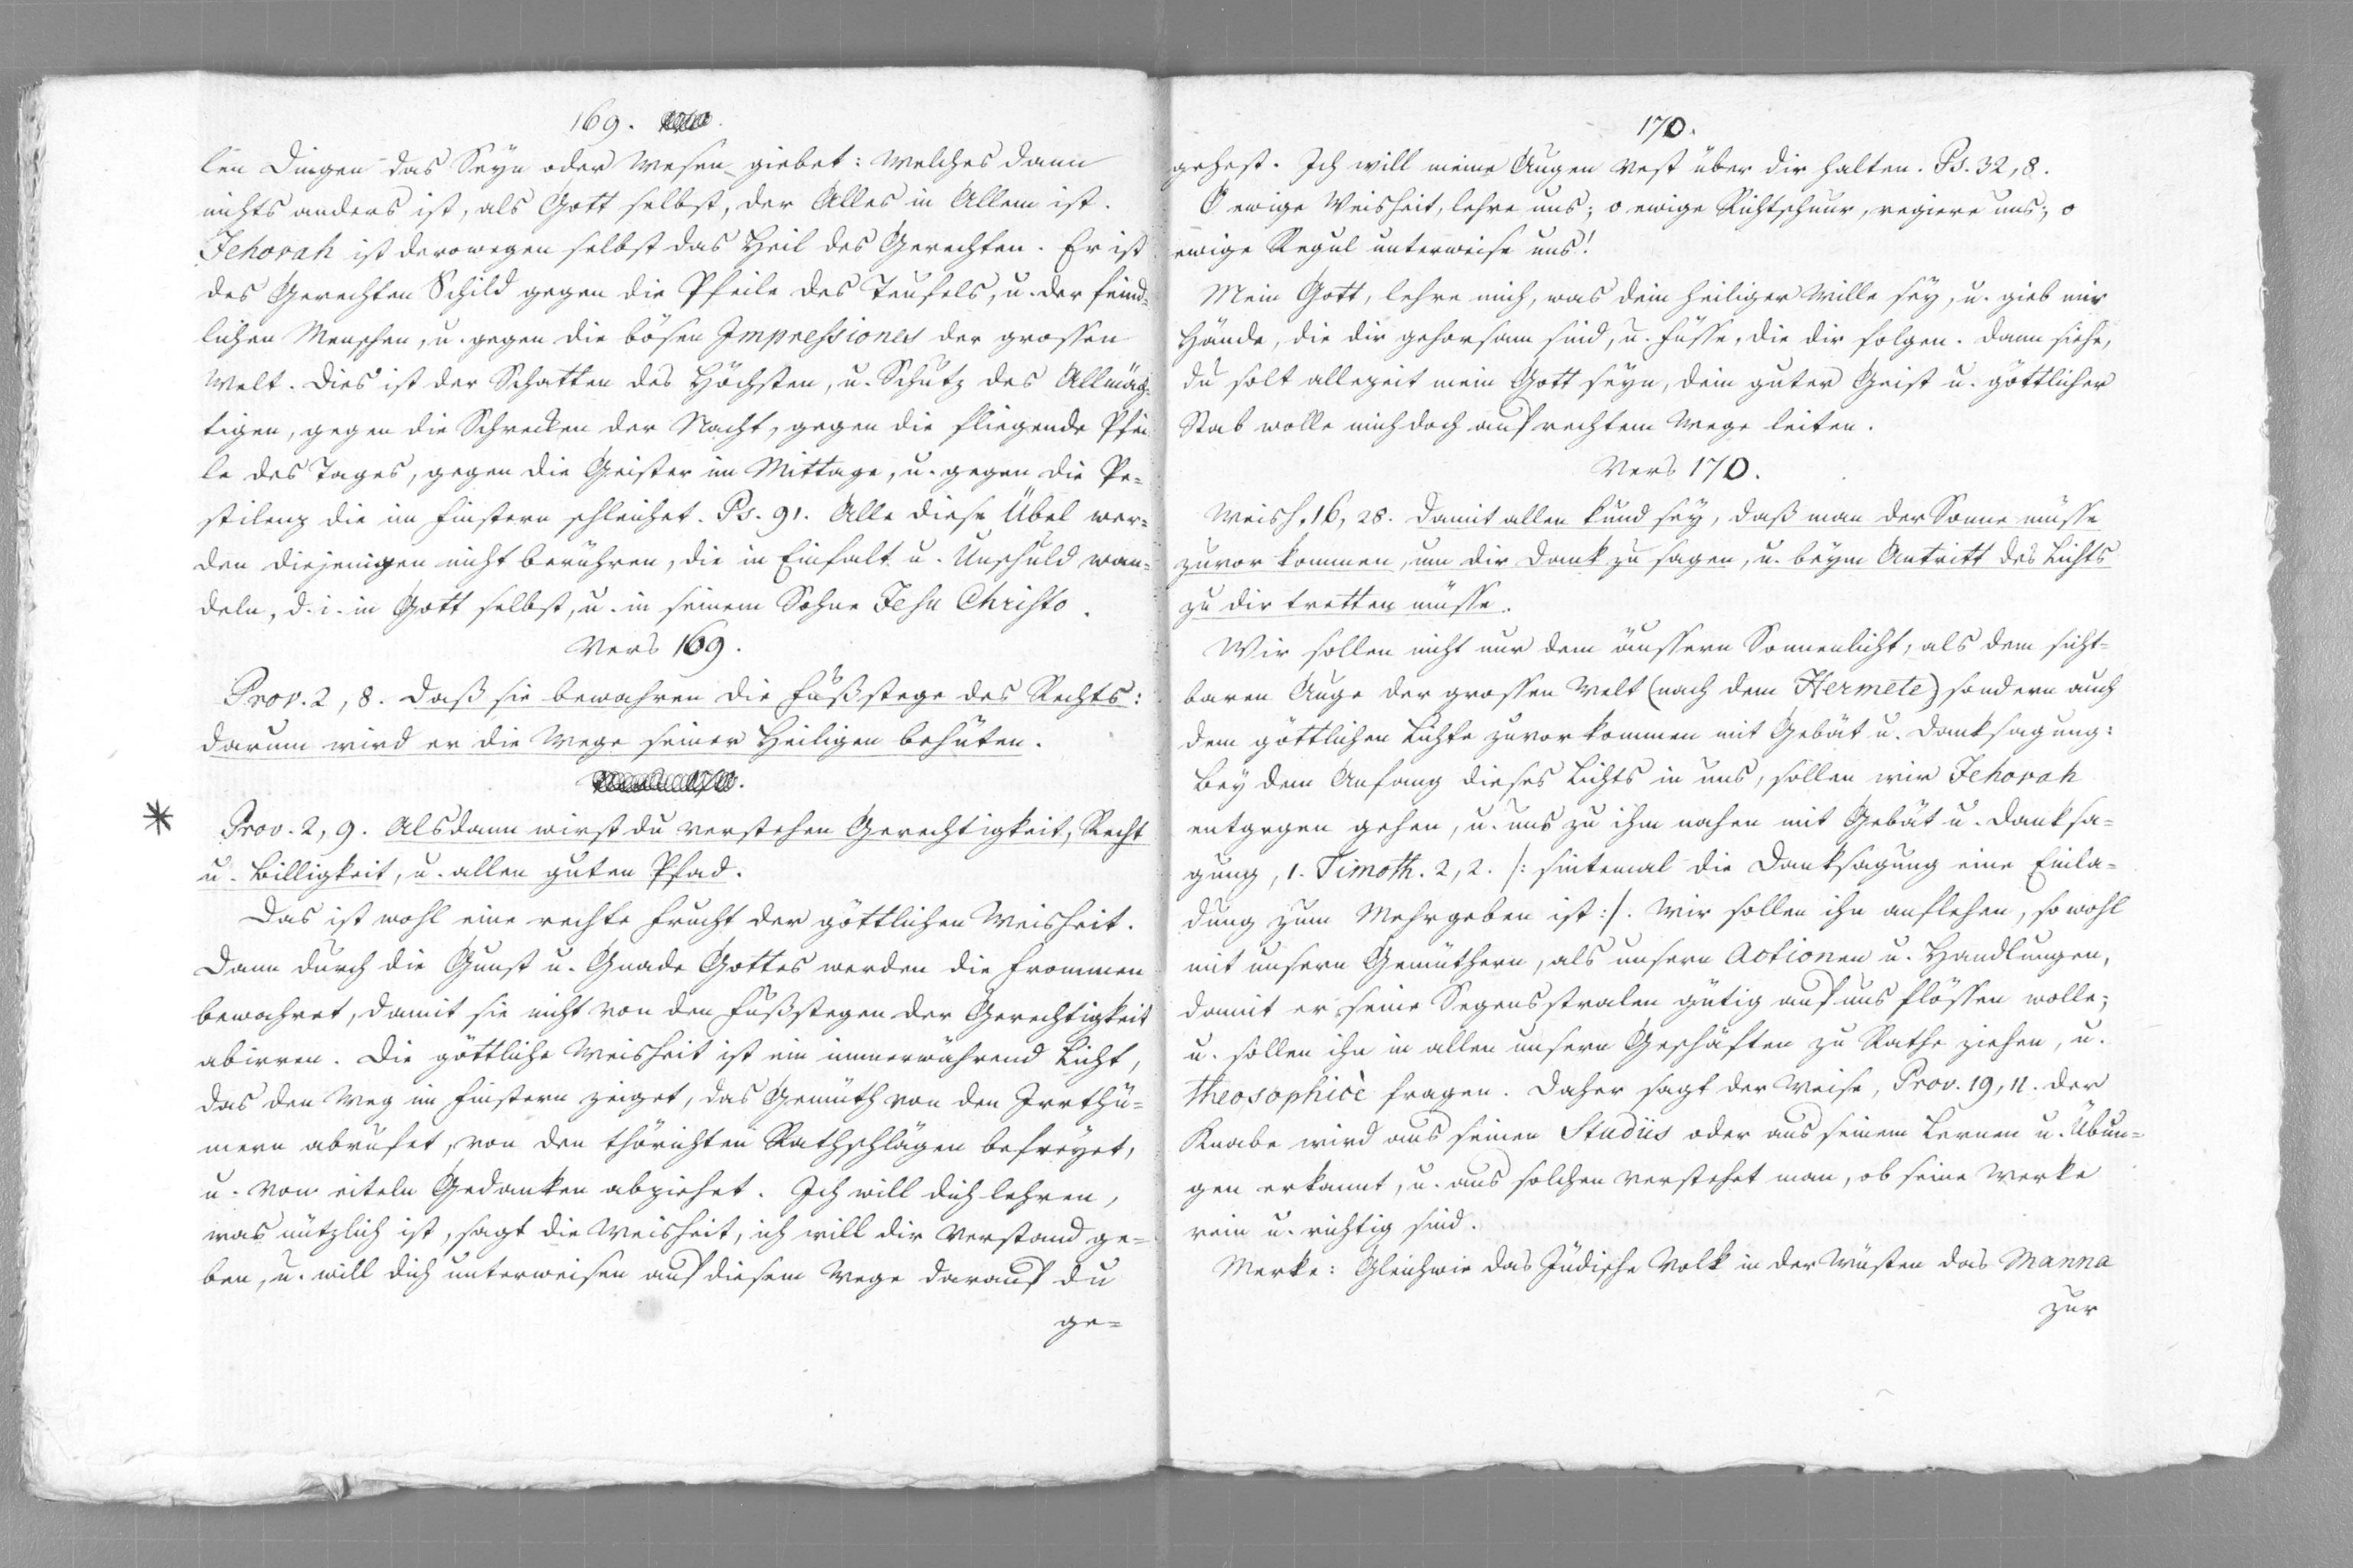 169.
len Dingen das Seyn oder Wesen giebet: welches dann
nichts anders ist, als Gott selbst, der Alles in Allem ist.
Jehovah ist derowegen selbst das Heil des Gerechten. Er ist
des Gerechten Schild gegen die Pfeile des Teufels, u. der feind-
lichen Menschen, u. gegen die bösen Impressiones der grossen
Welt. Dies ist der Schatten des Höchsten, u. Schutz des Allmäch-
tigen, gegen die Schrecken der Nacht, gegen die fliegende Pfei-
le des Tages, gegen die Geister im Mittage, u. gegen die Pe-
stilenz die im finstern schleichet. Ps. 91. Alle diese Übel wer-
den diejenigen nicht berühren, die in Einfalt u. Unschuld wan-
deln, d. i. in Gott selbst, u. in seinem Sohne Jesu Christo.
Vers 169.
Prov. 2, 8. Daß sie bewahren die Fußstege des Rechts:
darum wird er die Wege seiner Heiligen behüten.
* Prov. 2, 9. Alsdann wirst du verstehen Gerechtigkeit, Recht
u. Billigkeit, u. allen guten Pfad.
Das ist wohl eine rechte Frucht der göttlichen Weisheit.
Dann durch die Gunst u. Gnade Gottes werden die Frommen
bewahret, damit sie nicht von den Fußstegen der Gerechtigkeit
abirren. Die göttliche Weisheit ist ein immerwährend Licht,
das den Weg im finstern zeiget, das Gemüth von den Irrthü-
mern abrufet, von den thörichten Rathschlägen befreyet,
u. von eiteln Gedanken abziehet. Ich will dich lehren,
was nützlich ist, sagt die Weisheit, ich will dir Verstand ge-
ben, u. will dich unterweisen auf diesem Wege darauf du
ge-
170.
gehest. Ich will meine Augen vest über dir halten. Ps. 32, 8.
O ewige Weisheit, lehre uns; o ewige Richtschnur, regiere uns; o
ewige Regul unterweise uns!
Mein Gott, lehre mich, was dein heiliger Wille sey, u. gieb mir
Hände, die dir gehorsam sind, u. Füsse, die dir folgen. Dann siehe,
du solt allezeit mein Gott seyn, dein guter Geist u. göttlicher
Stab wolle mich doch auf rechtem Wege leiten.
Vers 170.
Weish. 16, 28. Damit allen kund sey, daß man der Sonne müsse
zuvor kommen, um dir Dank zu sagen, u. beym Antritt des Lichts
zu dir tretten müsse.
Wir sollen nicht nur dem äussern Sonnenlicht, als dem sicht-
baren Auge der grossen Welt (nach dem Hermete) sondern auch
dem göttlichen Lichte zuvor kommen mit Gebät u. Danksagung:
Bey dem Anfang dieses Lichts in uns, sollen wir Jehovah
entgegen gehen, u. uns zu ihm nahen mit Gebät u. Danksa-
gung, 1. Timoth. 2, 2. /: sintemal die Danksagung eine Einla-
dung zum Mehrgeben ist :/. Wir sollen ihn anflehen, so wohl
mit unsern Gemüthern, als unsern Actionen u. Handlungen,
damit er seine Segensstralen gütig auf uns flössen wolle;
u. sollen ihn in allen unsern Geschäften zu Rathe ziehen, u.
theosophicè fragen. Daher sagt der Weise, Prov. 19, 11. der
Knabe wird aus seinen Studiis oder aus seinem Lernen u. Übun-
gen erkannt, u. aus solchen verstehet man, ob seine Werke
rein u. richtig sind.
Merke: Gleichwie das Jüdische Volk in der Wüsten das Manna
zur